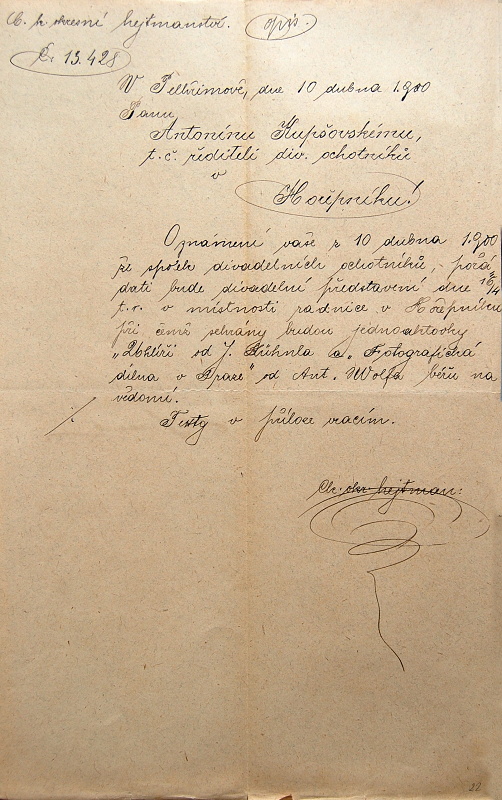 C. k. okresní hejtmanství. opis.
Č. 13.428
V Pelhřimově, dne 10 dubna 1900
Panu
Antonínu Kupšovskému,
t. č. řediteli div. ochotníků
v
Hořepníku!
Oznámení vaše z 10 dubna 1900
že spolek divadelních ochotníků, pořá
dati bude divadelní představení dne 16/4
t. r. v místnosti radnice v Hořepníku
při čemž sehrány budou jednoaktovky
od J. Kühnla a „Fotografická
dílna v Praze" od Ant. Wolfa béřu na
vědomí.
Texty v příloze vracím.
C. k. okr. hejtman:
22